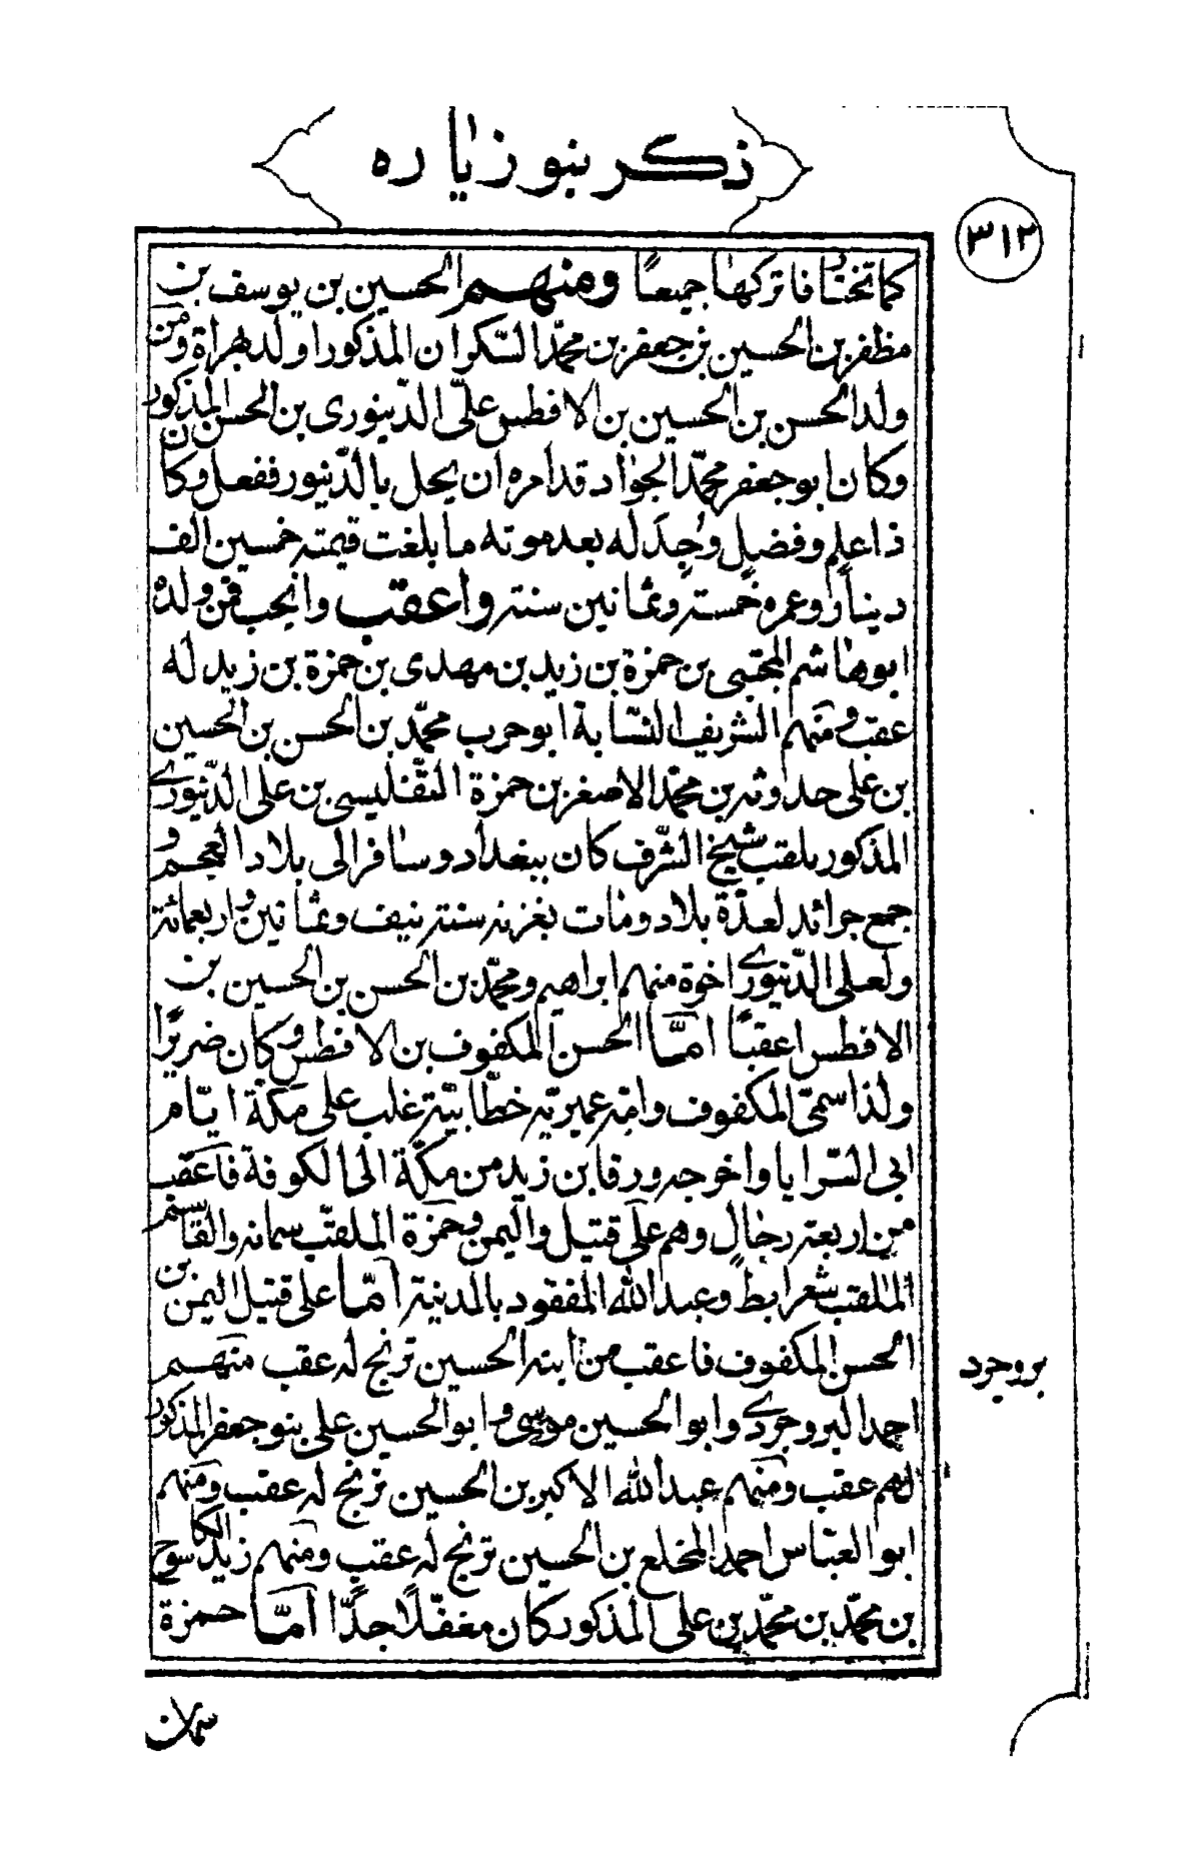 ذكر بنو زياره
٣١٢
كما تختار فاتركها جميعًا ومنهم الحسين بن يوسف بن
مظفر بن الحسين بن جعفر بن محمّد السّكران المذكور اولد بهراة ومن
ولد الحسن بن الحسين بن الافطس علىّ الدّينورى بن الحسن المذكور
وكان ابو جعفر محمّد الجواد قد امره ان يحل بالدّينور ففعل وكان
ذا علم وفضل وجد له بعد موته ما بلغت قيمته خمسين الف
دينار وعمره خمسة وثمانين سنة واعقب وانجب فمن ولده
ابوهاشم المجتبى بن حمزة بن زيد بن مهدى بن حمزة بن زيد له
عقب ومنهم الشريف النسّابة ابو حرب محمّد بن الحسن بن الحسين
بن على حدوثه بن محمّد الاصغر بن حمزة التّفليسى بن على الدّينورے
المذكور يلقب شيخ الشّرف كان ببغداد وسافر الى بلاد العجم و
جمع جرائد لعدّة بلاد ومات بغزنه سنة نيف وثمانين واربعمائة
ولعلى الدّينورے اخوة منهم ابراهيم ومحمّد بن الحسن بن الحسين بن
الافطس اعقبًا امّا الحسن المكفوف بن الافطس وكان ضريرًا
ولذا سمّى المكفوف وامّه عميريّه خطّابيّة غلب على مكّة ايّام
ابى السّرايا واخرجه ورقا بن زيد من مكّة الى الكوفة فاعقب
من اربعة رجال وهم على قتيل واليمن وحمزة الملقّب سمانه والقاسم
الملقب شعرابط وعبد الله المفقود بالمدينة امّا على قتيل اليمن بن
الحسن المكفوف فاعقب من ابنه الحسين ترنج له عقب منهم
بروجرد
احمد البروجردے وابو الحسين موسى وابو الحسين على بنو جعفر المذكور
لهم عقب ومنهم عبد الله الاكبر بن الحسين ترنج له عقب ومنهم
ابو العبّاس احمد المخلع بن الحسين ترنج له عقب ومنهم زيد الكاسوح
بن محمّد بن محمّد بن على المذكور كان مغفّلًا جدًّا امّا حمزة
سمان